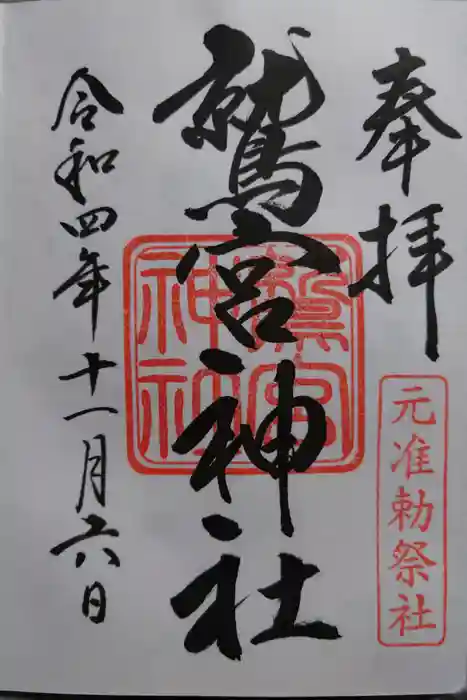 奉拝
元准勅祭社
鷲宮神社
鷲宮神社
令和四年十一月六日